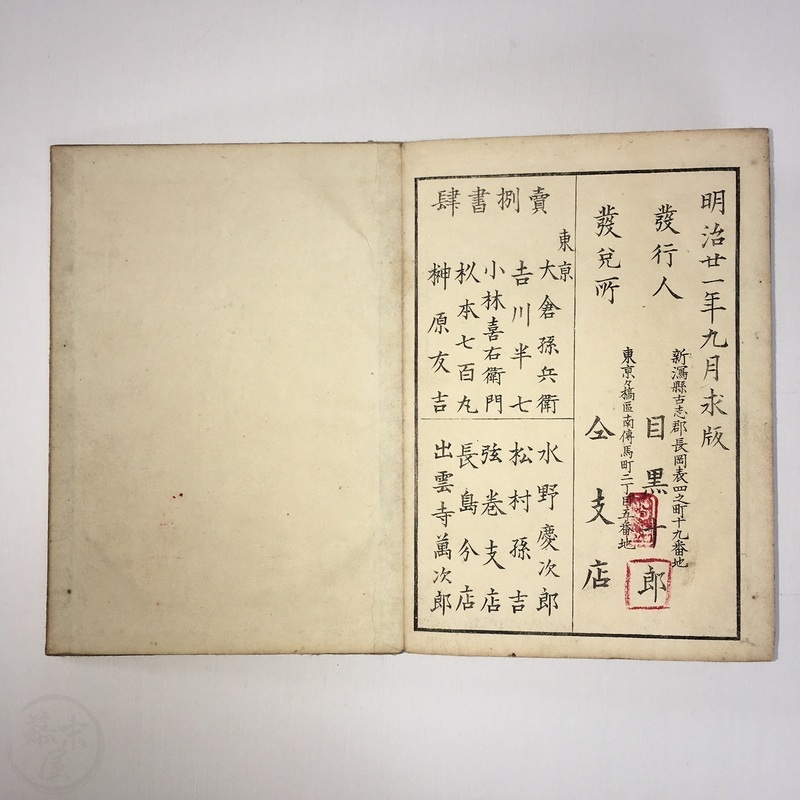 明治廿一年九月求版
發行人
新潟縣古志郡長岡表四之町十九番地
目黒十郎
發兌所
東京々橋區南傳馬町二丁目五番地
仝支店
賣捌書肆
東京
大倉孫兵衛
吉川半七
小林喜右衛門
杦本七百丸
榊原友吉
水野慶次郎
松村孫吉
弦巻支店
長島分店
出雲寺萬次郎
幕末屋